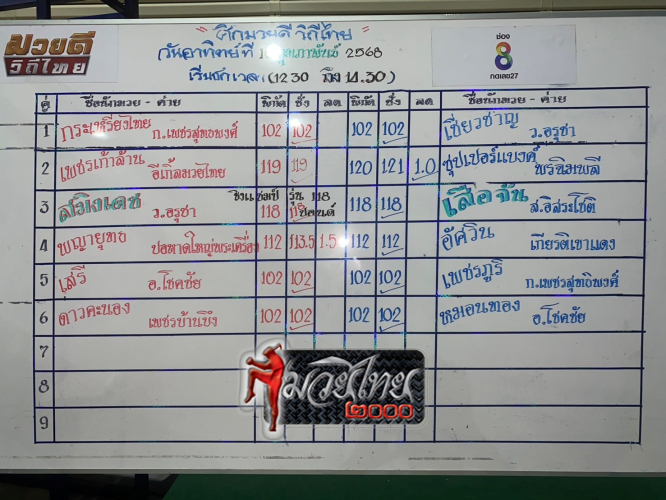 มวยดี
วิถีไทย
"ศึกมวยดี วิถีไทย"
วันอาทิตย์ที่ กุมภาพันธ์ 2568
เริ่มชกเวลา (12.30 ถึง 14.30)
ช่อง
8
กดเลข27
คู่ ชื่อนักมวย - ค่าย พิกัด ชั่ง ลด พิกัด ชั่ง ลด ชื่อนักมวย - ค่าย
1 กระเหรี่ยงไทย ก.เพชรสุทธพงศ์ 102 102 102 102 เชี่ยวชาญ ว.อรุชา
2 เพชรเก้าล้าน อีเกิ้ลมวยไทย 119 119 120 121 1.0 ซุปเปอร์แบงค์ พรนิมพลี
ชิงแชมป์ รุ่น 118 ปอนด์
3 สวิงเดช ว.อรุชา 118 118 118 118 เสือจัน ส.อิสระโชติ
4 พญายุทธ ปอหาดใหญ่พระเครื่อง 112 113.5 1.5 112 112 อัศวิน เกียรติเขาแดง
5 เสรี อ.โชคชัย 102 102 102 102 เพชรภูริ ก.เพชรสุทธิพงศ์
6 ดาวคะนอง เพชรบ้านบึง 102 102 102 102 หมอนทอง อ.โชคชัย
7
8
9
มวยไทย
๒๐๐๐